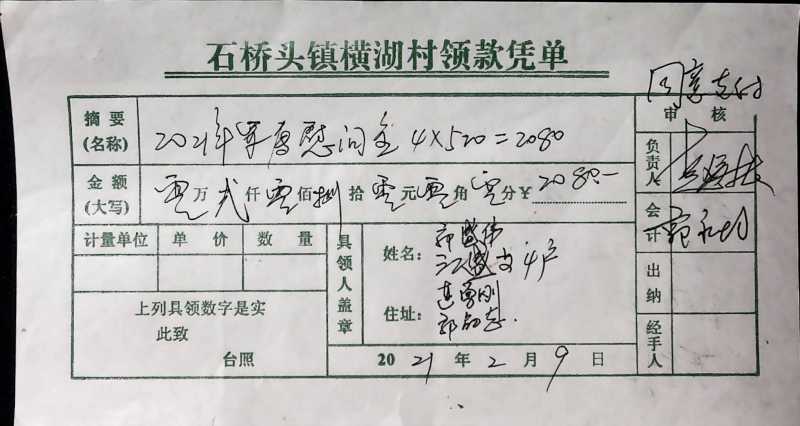 石桥头镇横湖村领款凭单
同意支付
摘要(名称) 2021年军属慰问金 4×520=2080
审核
金额(大写) 零万 弍仟 零佰 捌拾 零元 零角 零分 ¥ 2080.—
负责人
计量单位 单价 数量
具领人盖章
姓名:
4户
住址:
会计
上列具领数字是实
此致
台照
2021年2月9日
出纳
经手人